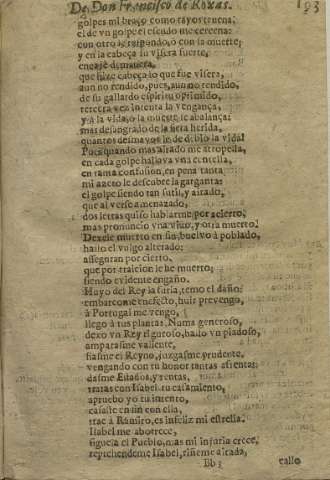 De Don Francisco de Roxas. 193
golpes mi braço como rayos truena;
el de vn golpe ofendo me cercena:
con otro le respondo, o con la muerte,
y en la cabeça su visera fuerte,
encaxè de manera,
que hize cabeça lo que fue visera,
aun no rendido, pues, aun no rendido,
de su gallardo espiritu oprimido,
tercera vez intenta la vengança,
y a la vida, o la muerte se abalança;
mas desangrado de la fiera herida,
quantos desmayos le dê la vida!
Pues quando mas ayrado me atropella,
en cada golpe hallava vna centella,
en tanta confusion, en pena tanta
mi azero le descubre la garganta:
el golpe siendo tan sutil, y ayrado,
que al verse amenazado,
dos letras quiso hablarme por acierto,
mas pronunciò vna vivo, y otra muerto.
Dexele muerto en fin, buelvo à poblado,
hallo el vulgo alterado:
asseguran por cierto,
que por traicion le he muerto,
siendo evidente engaño.
Huyo del Rey la furia, temo el daño:
embarcome en efecto, huir prevengo,
à Portugal me vengo,
llego à tus plantas, Numa generoso,
dexo vn Rey riguroso, hallo vn piadoso,
amparasme valiente,
fiasme el Reyno, juzgasme prudente,
vengando con tu honor tantas afrentas:
dasme Estados, y rentas,
tratas con Isabel tu casamiento,
apruebo yo tu intento,
casaste en fin con ella,
trae à Ramiro, es infeliz mi estrella.
Isabel me aborrece,
siguela el Pueblo, mas mi injuria crece,
reprehendeme Isabel, riñeme ayrada,
Bb 3 callo